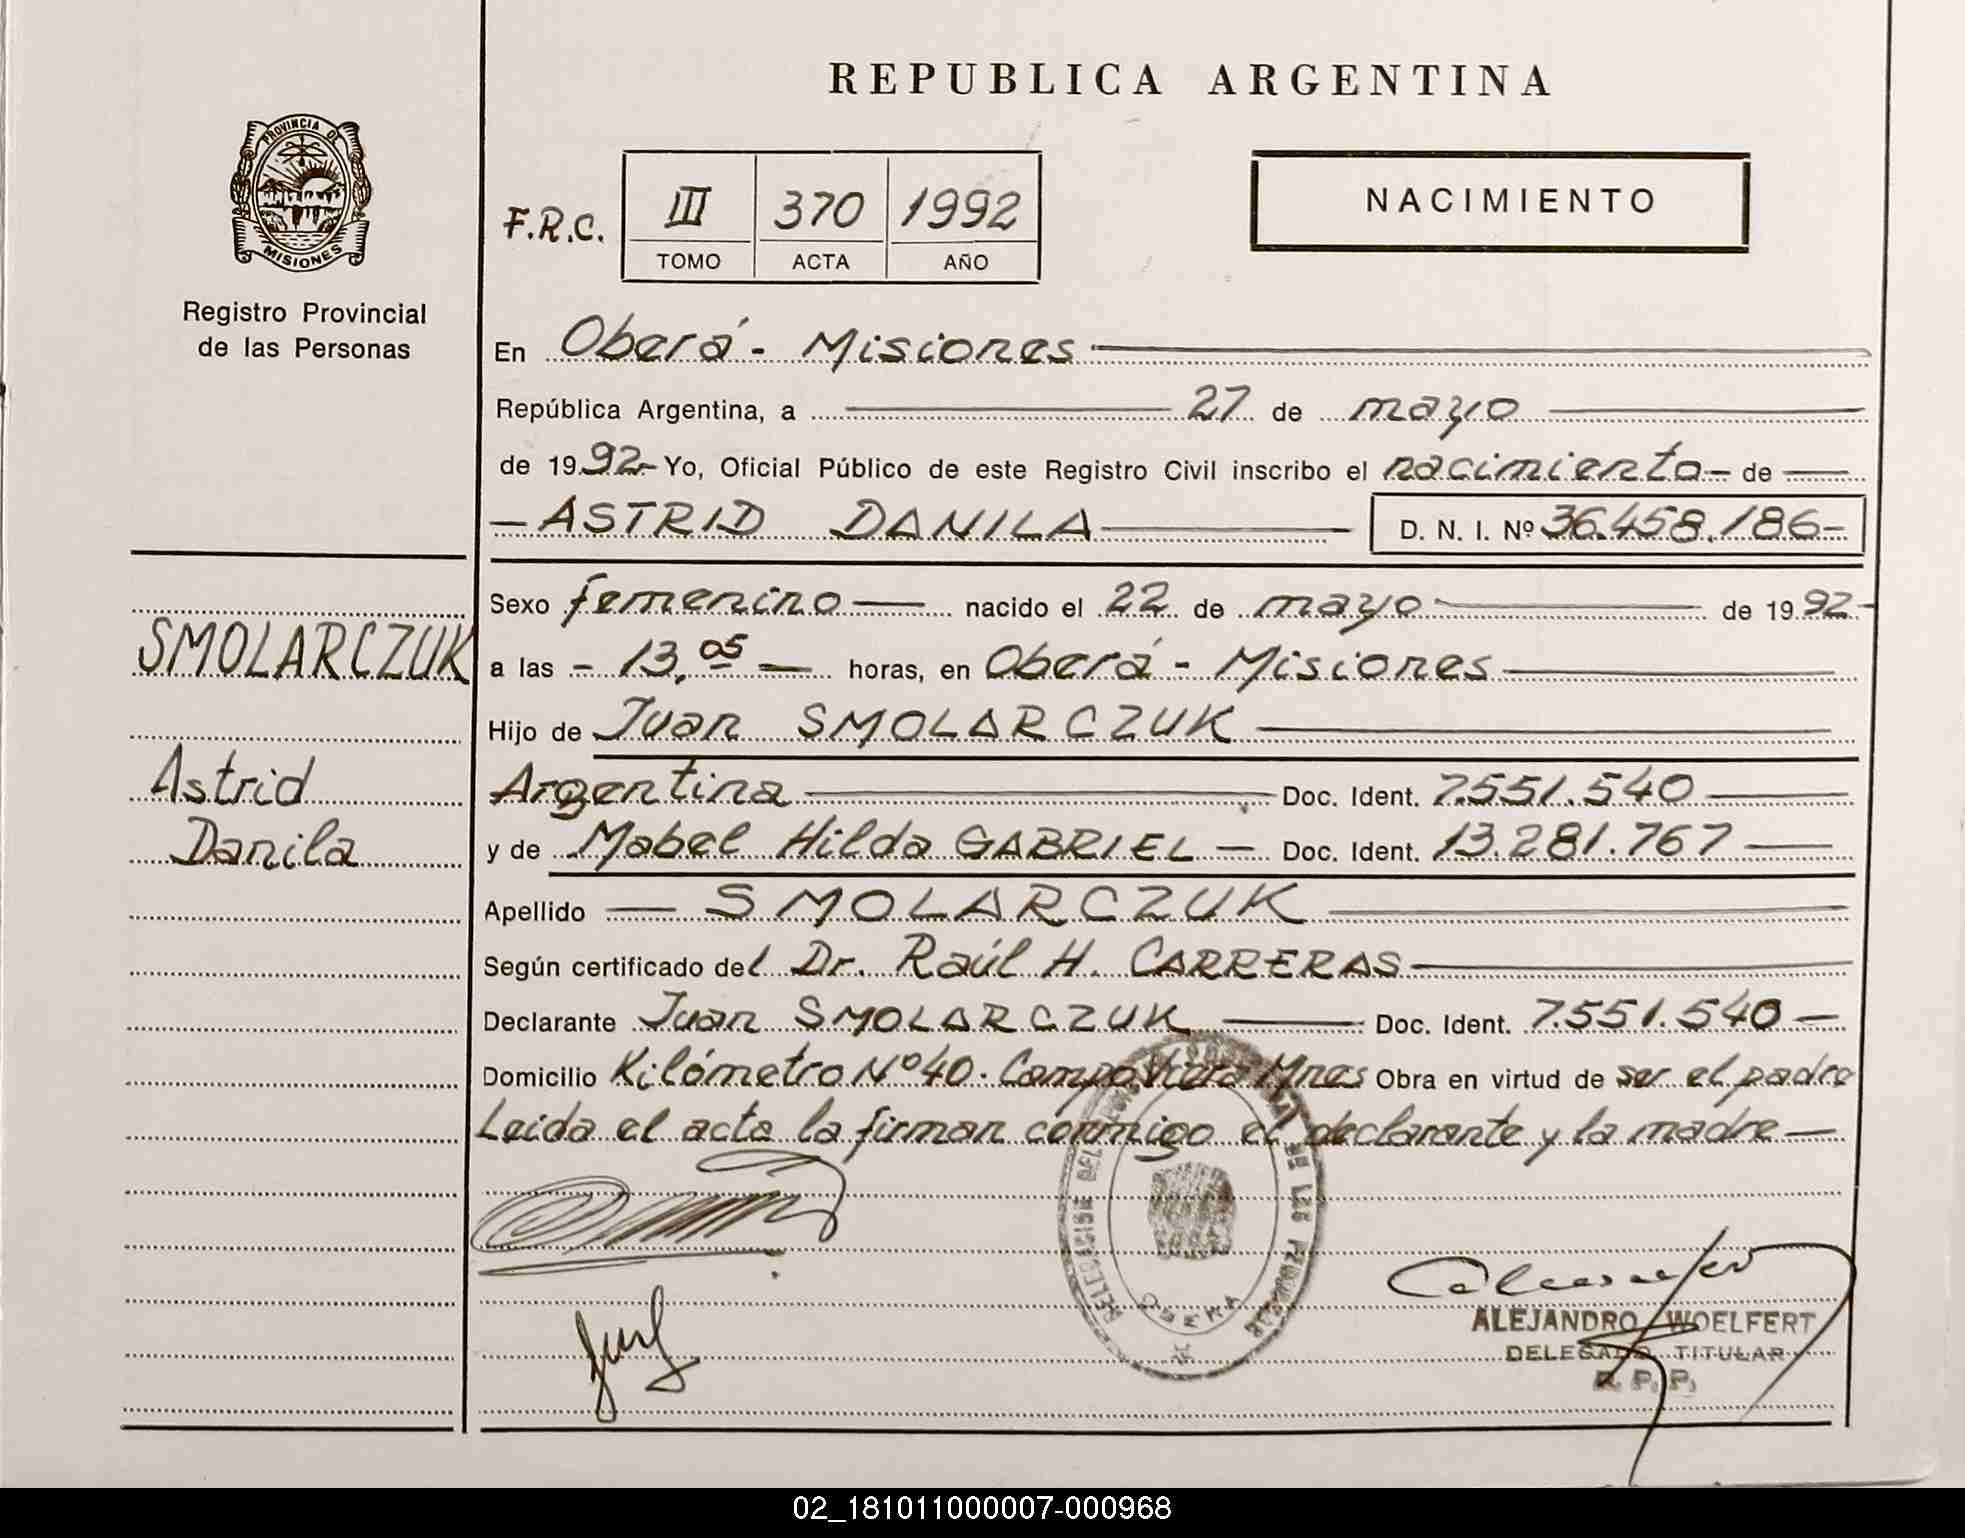 REPUBLICA ARGENTINA
PROVINCIA DE
MISIONES
Registro Provincial
de las Personas
F.R.C.
III 370 1992
TOMO ACTA AÑO
NACIMIENTO
En Oberá - Misiones
República Argentina, a 27 de mayo
de 1992 Yo, Oficial Público de este Registro Civil inscribo el nacimiento de
ASTRID DANILA D. N. I. Nº 36.458.186
Sexo femenino nacido el 22 de mayo de 1992
SMOLARCZUK
a las 13,05 horas, en Oberá - Misiones
Hijo de Juan SMOLARCZUK
Astrid
Argentina Doc. Ident. 7.551.540
Danila
y de Mabel Hilda GABRIEL Doc. Ident. 13.281.767
Apellido SMOLARCZUK
Según certificado del Dr. Raúl H. CARRERAS
Declarante Juan SMOLARCZUK Doc. Ident. 7.551.540
Domicilio Kilómetro Nº 40. Campo Viera Mnes Obra en virtud de ser el padre
Leida el acta la firman conmigo el declarante y la madre
OBERA
ALEJANDRO WOELFERT
DELEGADO TITULAR
R. P. P.
02_181011000007-000968